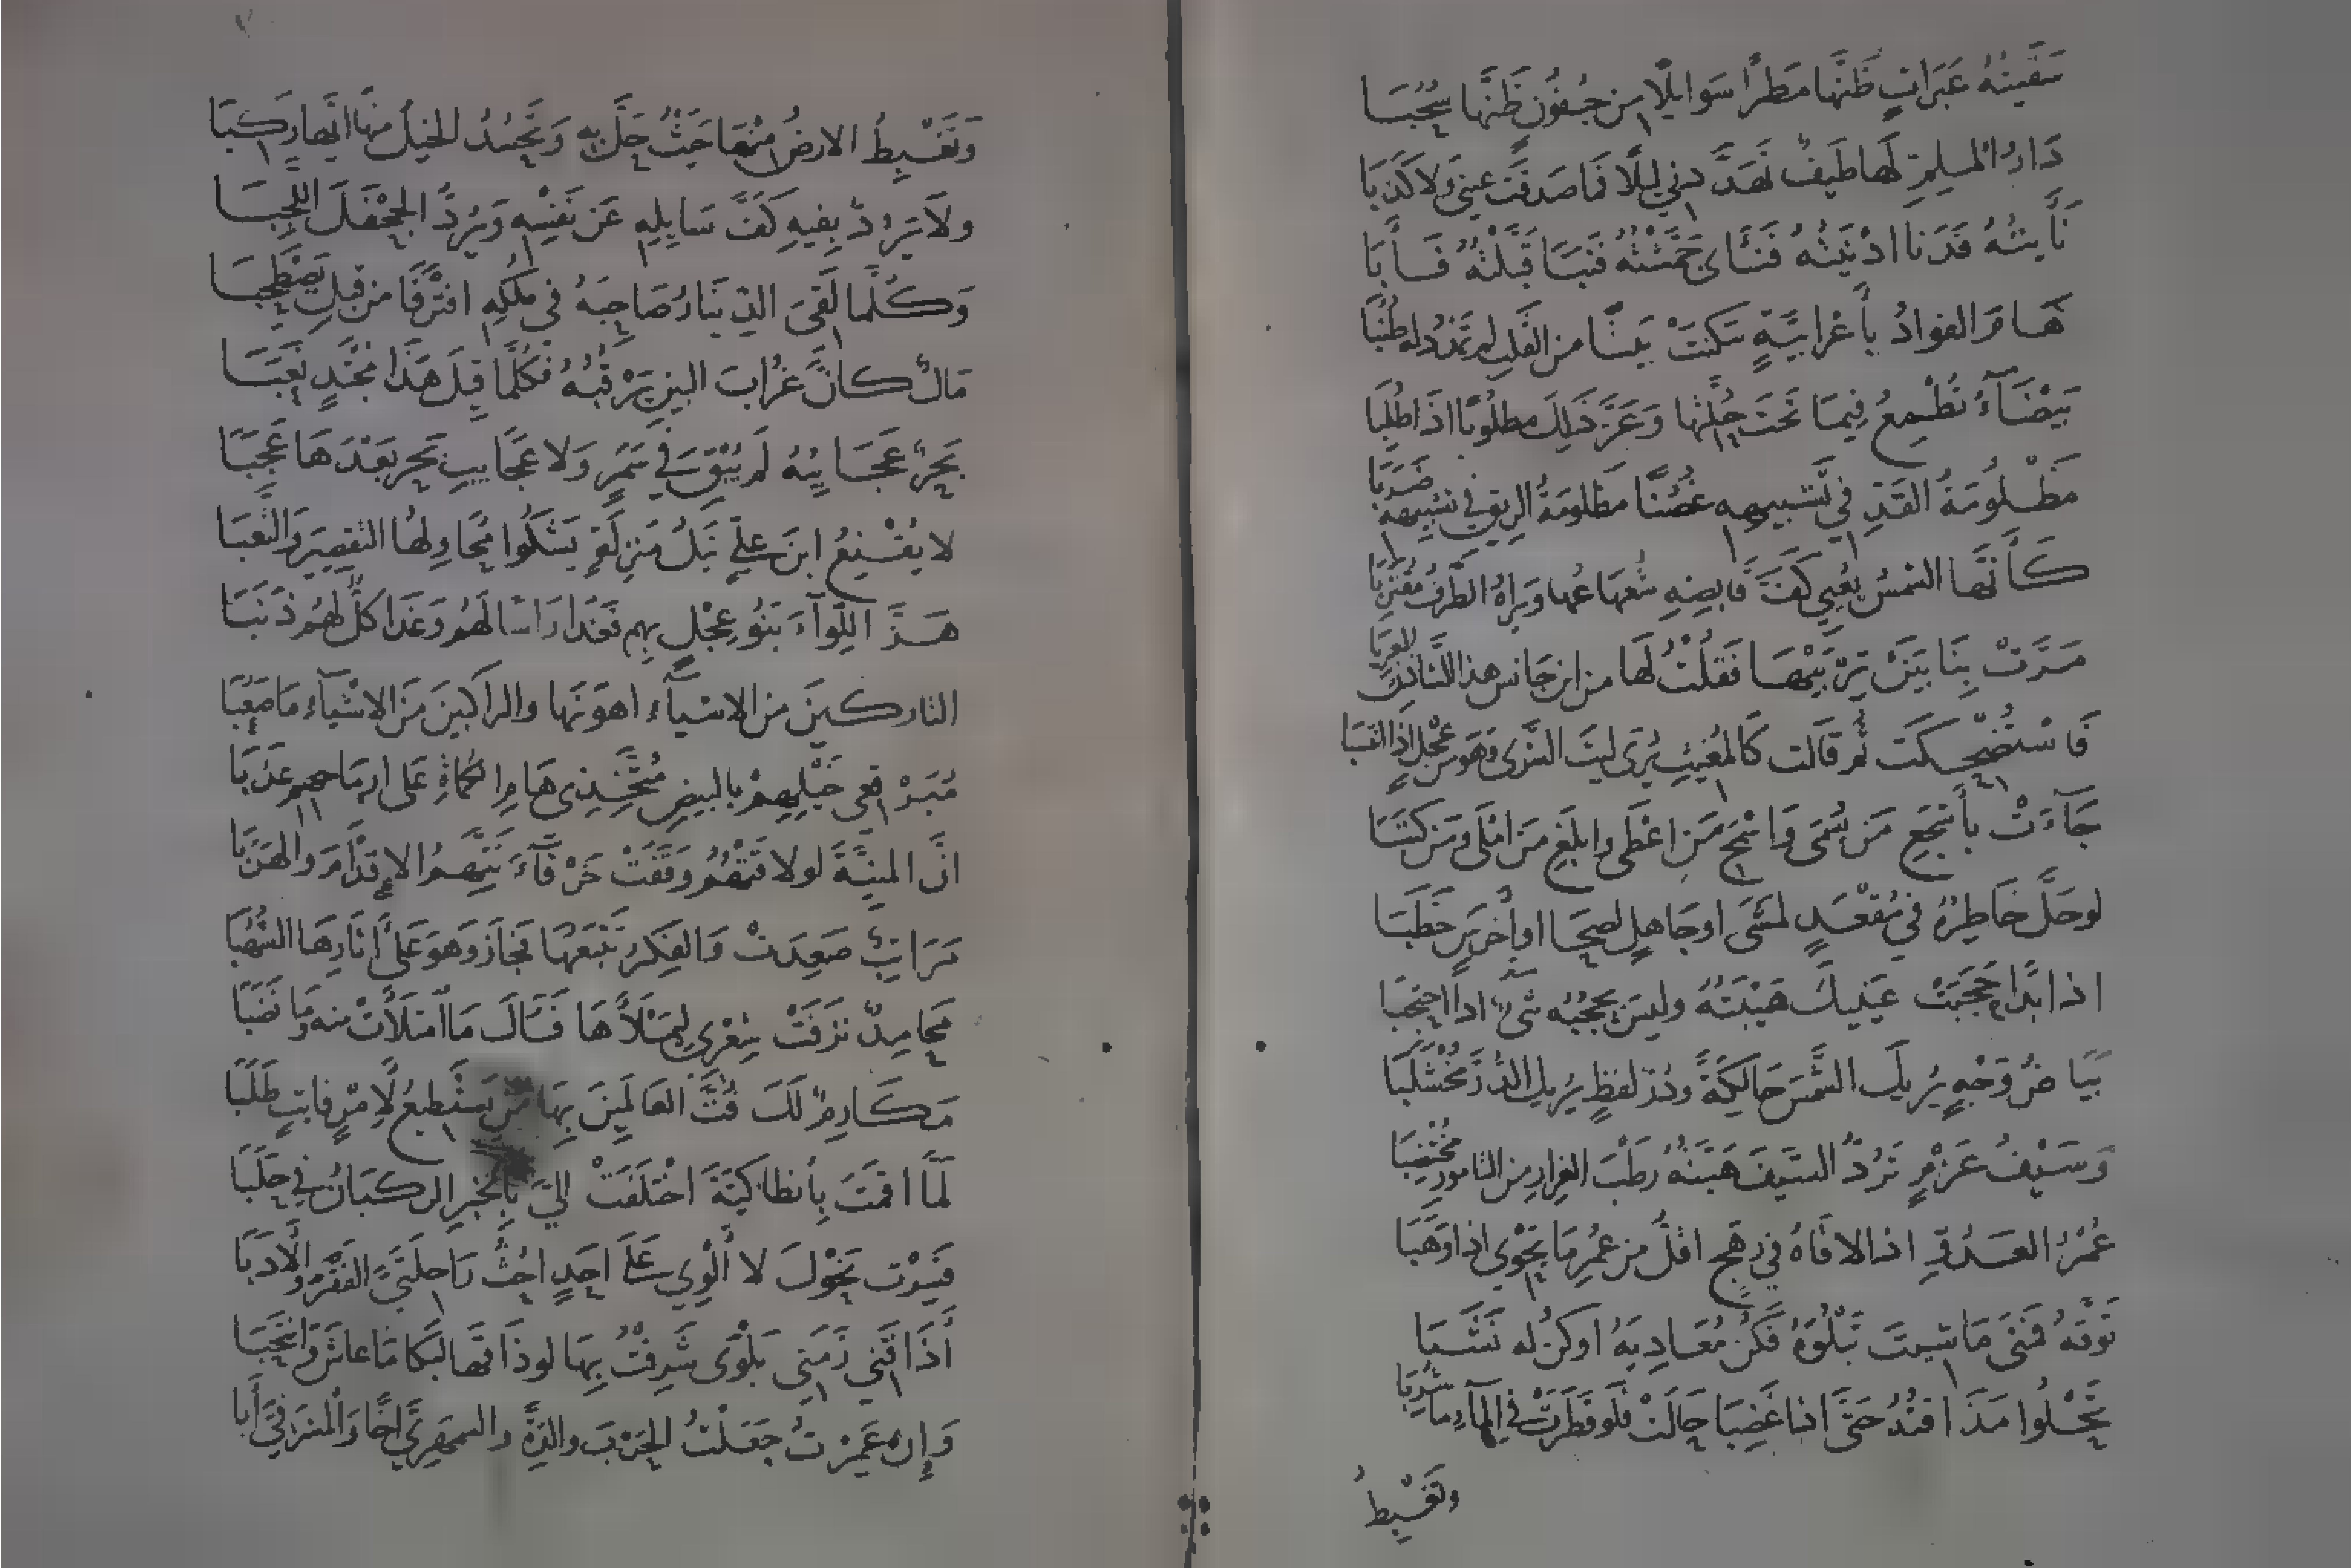 سَقَيتُهُ عَبَرَاتٍ ظَنَّها مَطَرًا سَوايِلًا مِن جُفُونٍ ظَنَّها سُحُبَا
دَارُ المسلِمِ لَها طَيفٌ تَهَدَّدَني ليلًا فَمَا صَدَقَتْ عيني ولا كَذَبَا
نَأَيتُهُ فَدَنا ادْنَيتُهُ فَنَأى جَمَّشْتُهُ فَنَبَا قَبَّلْتُهُ فَأَبَا
هَامَ الفوادُ بأَعْرابيَّةٍ سَكَنَتْ بَيتًا من القلبِ لم تَمدُد له طُنُبَا
بَيْضَآءُ تُطْمِعُ فِيمَا تَحتَ حُلَّتِها وَعَزَّ ذَلِكَ مطلُوبًا اذَا طُلِبَا
مَظْلُومَةُ القَدِّ في تَشبيهِهِ غُصُنًا مَظلومَةُ الريقِ في تشبيهِهِ ضَرَبَا
كَأَنَّها الشمسُ يُعيي كَفَّ قَابِضِهِ شُعَاعُها ويَراهُ الطَّرفُ مُقتَرِبَا
مَرَّتْ بِنَا بَيْنَ تِرْبَيْهَا فَقُلْتُ لَها من اين جَانس هذا الشَّادِنُ العَرَبَا
فَاسْتَضْحَكَت ثُم قالت كَالمُغيثِ يُرَى ليثَ الشَّرى وَهوَ من عِجْلٍ اذا انتسَبَا
جَآءَتْ بأَشجَعِ مَن يُسْمَى وَاسْمَحِ مَن اعْطَى وابلَغِ مَن امْلَى ومَن كَتَبَا
لو حَلَّ خَاطِرُهُ في مُقْعَدٍ لمَشَى او جَاهِلٍ لصَحَا او أَخْرَسٍ خَطَبَا
اذا بَدَا حَجَبَتْ عَينيكَ هَيْبَتُهُ وليسَ يَحجُبُه شيءٌ اذا احتجَبَا
بَيَاضُ وَجْهٍ يُريكَ الشَّمسَ حَالِكَةً ودُرّ لفظٍ يُرِيك الدُّرَّ مُخْشَلَبَا
وَسَيْفُ عَزْمٍ تَرُدُّ السَّيفَ هَبَّتُهُ رَطْبَ الغِرارِ من التامورِ مُخْتَضِبَا
عُمْرُ العَدُوِّ اذا لاقَاهُ في رَهَجٍ اقلُّ من عُمْرِ مَا يَحْوِي اذا وَهَبَا
تَوَقَّهُ فَمتى مَا شِيتَ تَبْلُوَهُ فَكُن مُعَادِيَهُ او كُن له نَشَبَا
تَحْلُوا مَذَاقتُهُ حَتَّى اذا غَضِبَا حَالَتْ فَلَو قَطَرَتْ في المآءِ مَا شُرِبَا
وتَغْبِطُ
وَتَغْبِطُ الارضُ مِنْهَا حَيْثُ حَلَّ بِهِ وَتَحْسُدُ الخيلُ منهَا ايَّها رَكِبَا
ولَا يَرُدُّ بِفيهِ كَفَّ سَايِلِهِ عَن نَفْسِهِ وَيَرُدُّ الجَحْفَلَ اللَّجِبَا
وَكُلَّما لَقِيَ الدينَارُ صَاحِبَهُ في مُلْكِهِ افتَرَقَا من قبلِ يَصْطَحِبَا
مَالٌ كَانَّ غُرابَ البينِ يَرْقُبُهُ فَكُلَّمَا قِيلَ هَذَا مُجْتَدٍ نَعَبَا
بَحْرٌ عَجَايِبُهُ لَم تُبْقِ في سَمَرٍ وَلا عَجَايِبِ بَحرٍ بَعْدَهَا عَجَبَا
لا يُقْنِعُ ابنَ عليٍّ نَيلُ مَنزِلَةٍ يَشكُوا مُحَاوِلُها التقصِيرَ وَالتَّعَبَا
هَزَّ اللِّوَآءَ بَنُو عِجْلٍ بِهِم فَغَدَا رَاسًا لَهُم وَغَدَا كلٌّ لهُم ذَنَبَا
التاركينَ منَ الاشيَآءِ اهوَنَها والراكبينَ مَنَ الاشيَآءِ مَا صَعُبَا
مُبَرْقعِي خَيْلِهِمْ بالبيضِ مُتَّخِذِي هَامِ الكُمَاةِ عَلى ارمَاحِهِم عَذَبَا
انَّ المنيَّةَ لو لاقَتْهُمُ وَقَفَتْ خَرْقَآءَ تَتَّهِمُ الاِقدَامَ والهَرَبَا
مَرَاتِبٌ صَعِدَتْ وَالفِكرُ يَتْبَعُهَا فَجَازَ وَهوَ عَلى اثارِهَا الشُّهُبَا
مَحَامِدٌ نَزَفَتْ شِعْري لِيَمْلَأَهَا فَآلَ مَا امتَلَأَتْ منه ومَا نَضَبَا
مَكَارِمٌ لَكَ فُتَّ العَالَمِينَ بِهَا مَن يَستَطِيعُ لِأَمْرٍ فايتٍ طَلَبَا
لَمَّا اقمتَ بِأَنطاكيَّةَ اخْتَلَفَتْ اليَّ بِالخَبرِ الركبَانُ في حَلَبَا
فَسِرْت نَحْوَكَ لا أَلْوِي عَلَى احَدٍ احُثُّ رَاحلَتَيَّ الفَقْرَ والْادَبَا
أَذَاقَني زَمَني بَلْوَى شَرِقْتُ بِهَا لو ذَاقَها لبَكا مَا عاشَ وَانتَحَبَا
وَإِن عَمِرْتُ جَعَلْتُ الحَرْبَ والدَةً والسمهَرِيَّ اخًا وَالمشرَفيَّ أَبا